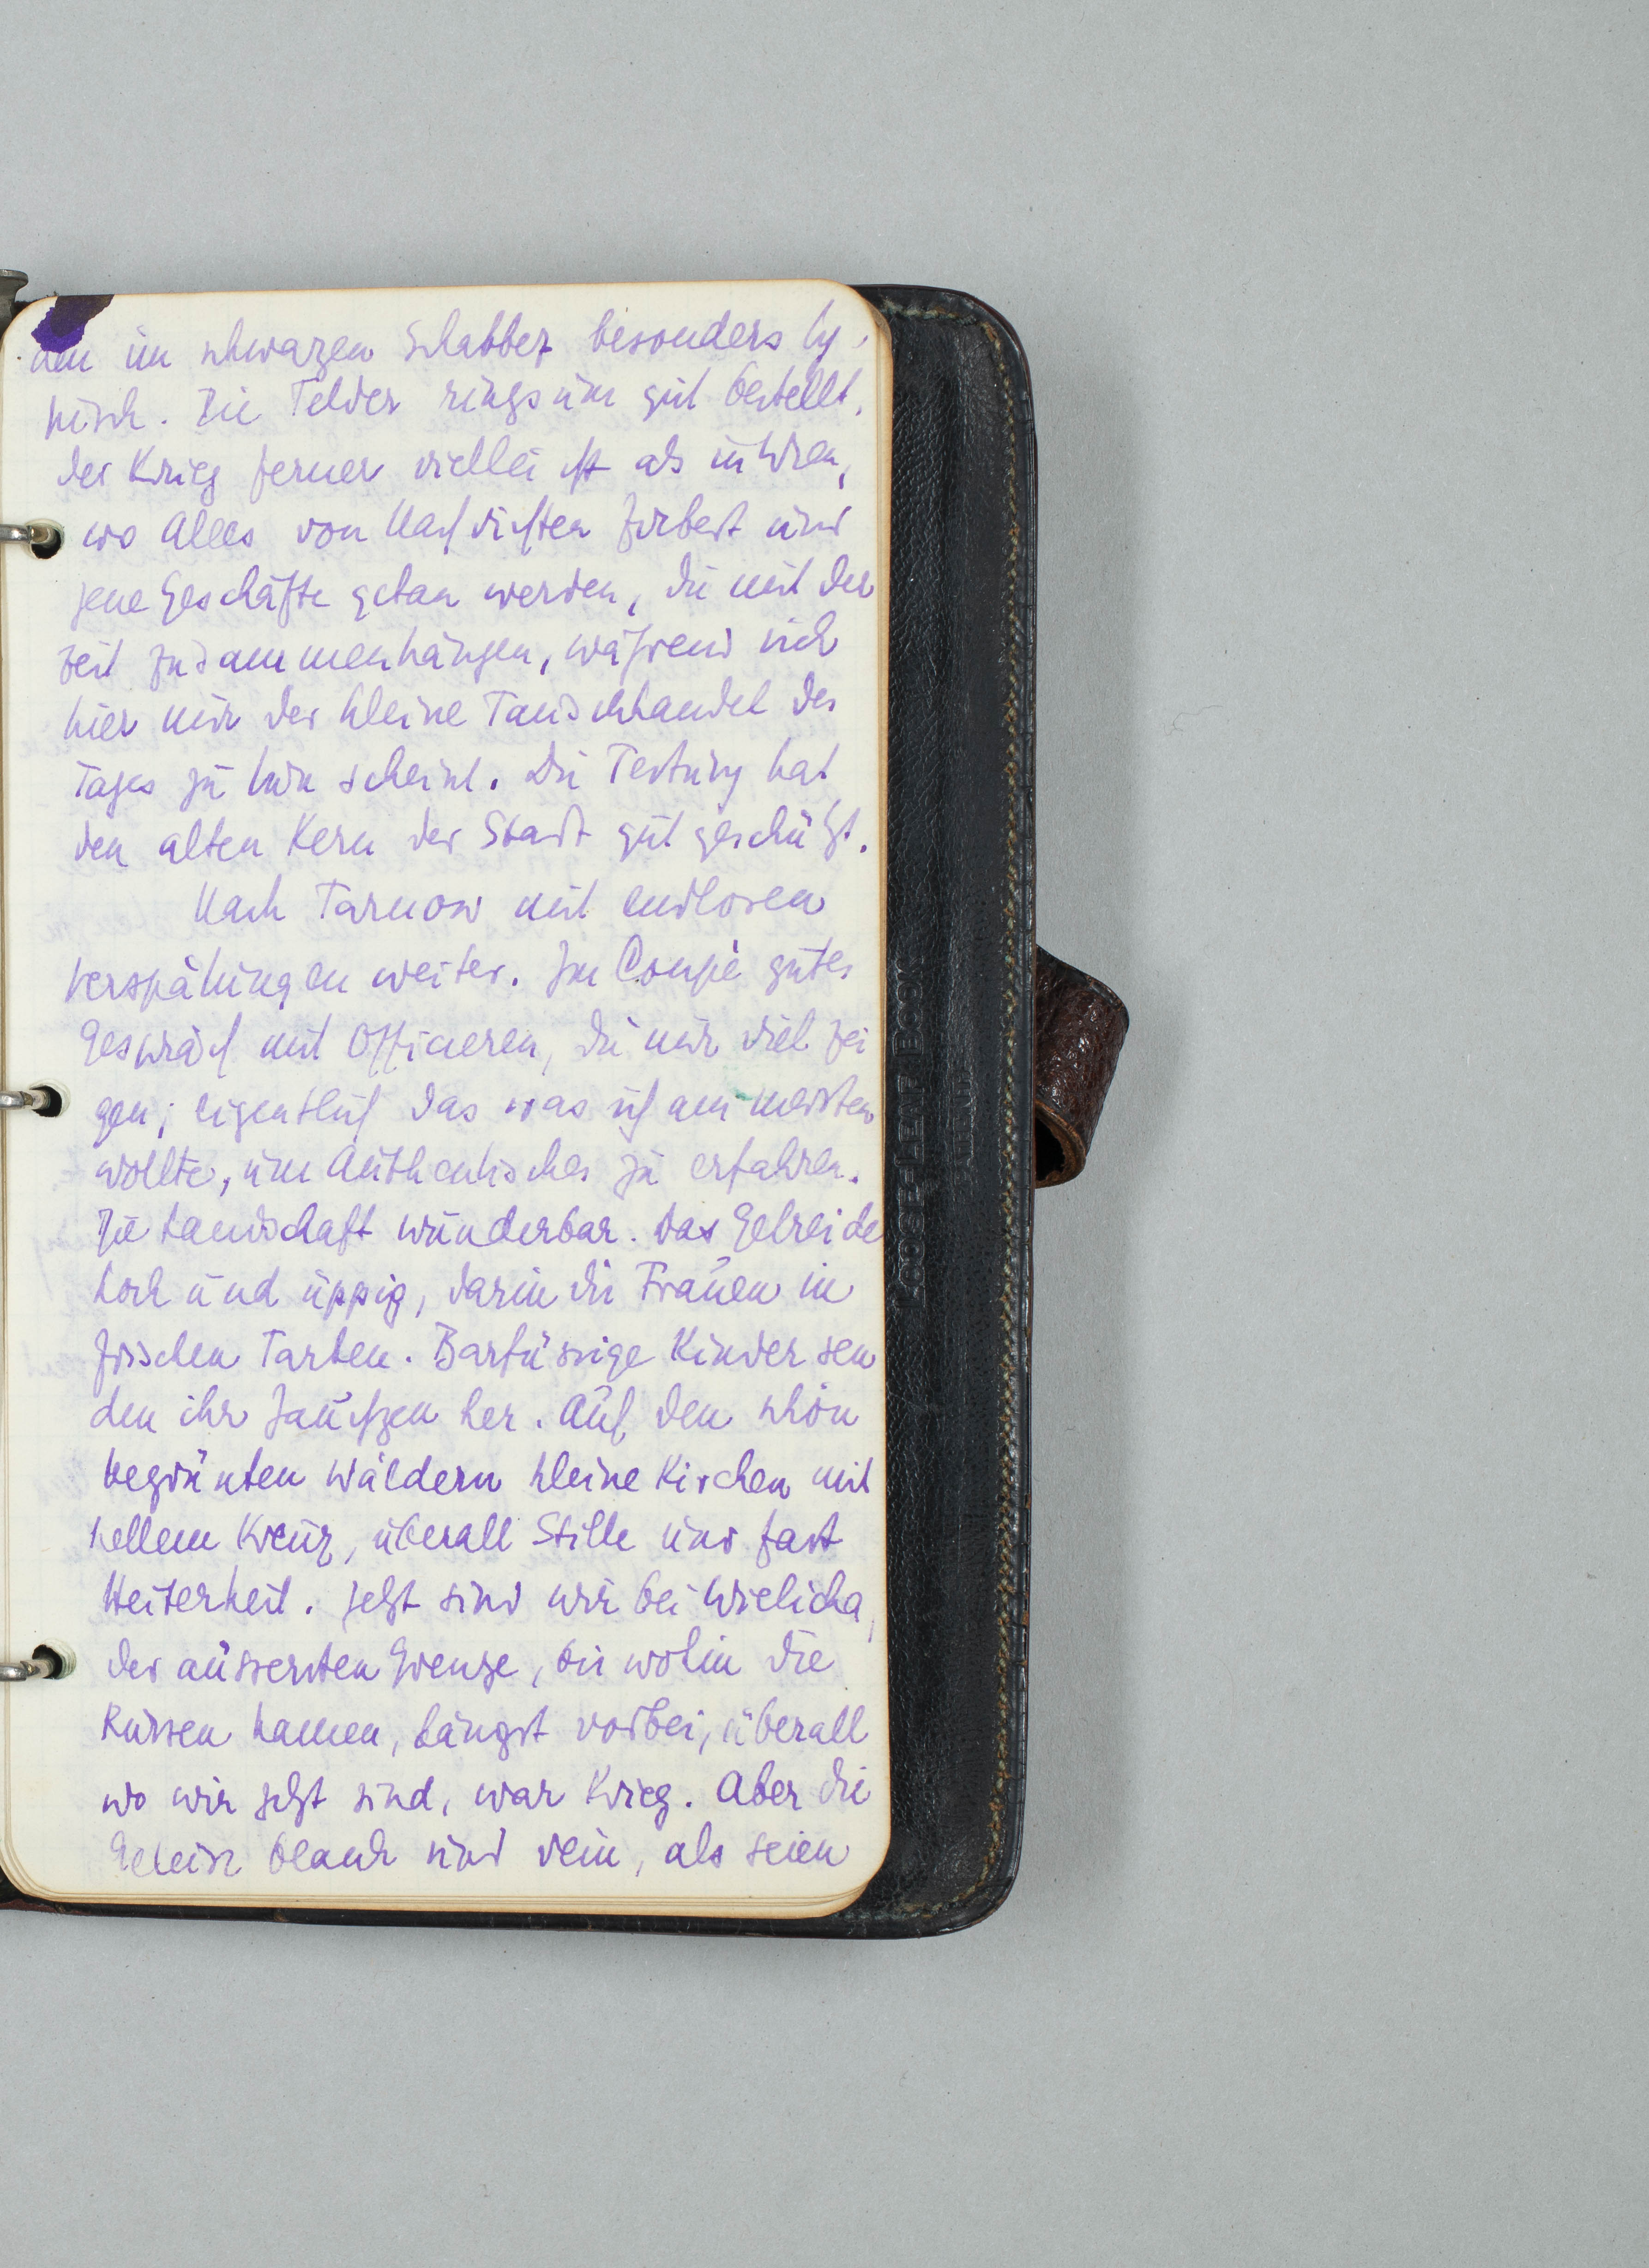 den im schwarzen Schabbez besonders ty-
pisch. Die Felder ringsum gut bestellt,
der Krieg ferner vielleicht als in Wien,
wo Alles von Nachrichten fiebert und
jene Geschäfte getan werden, die mit der
Zeit zusammenhängen, während sich
hier nur der kleine Tauschhandel des
Tages zu tun scheint. Die Festung hat
den alten Kern der Stadt gut geschützt.
Nach Tarnow mit endlosen
Verspätungen weiter. Im Coupè gutes
Gespräch mit Officieren, die mir viel zei
gen, eigentlich das was ich am meisten
wollte, um Authentisches zu erfahren.
Die Landschaft wunderbar. Das Getreide
hoch und üppig, darin die Frauen in
frischen Farben. Barfüssige Kinder sen
den ihr Jauchzen her. Auf den schön
begrünten Wäldern kleine Kirchen mit
hellem Kreuz, überall Stille und fast
Heiterkeit. Jetzt sind wir bei Wielicka,
der äussersten Grenze, bis wohin die
Russen kamen, längst vorbei, überall
wo wir jetzt sind, war Krieg. Aber die
Geleise blank und rein, als seien
LOOSE-LEAF BOOK